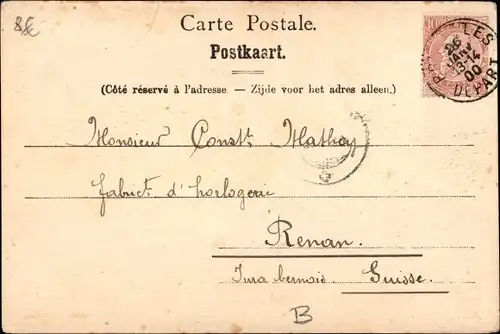 Carte Postale.
Postkaart.
(Côté réservé à l'adresse. — Zijde voor het adres alleen.)
10
LES
26
JANV
13-14
00
DEPART
Monsieur Const. Mathey
fabrict. d'horlogerie
Renan.
Jura bernois. Suisse.
B